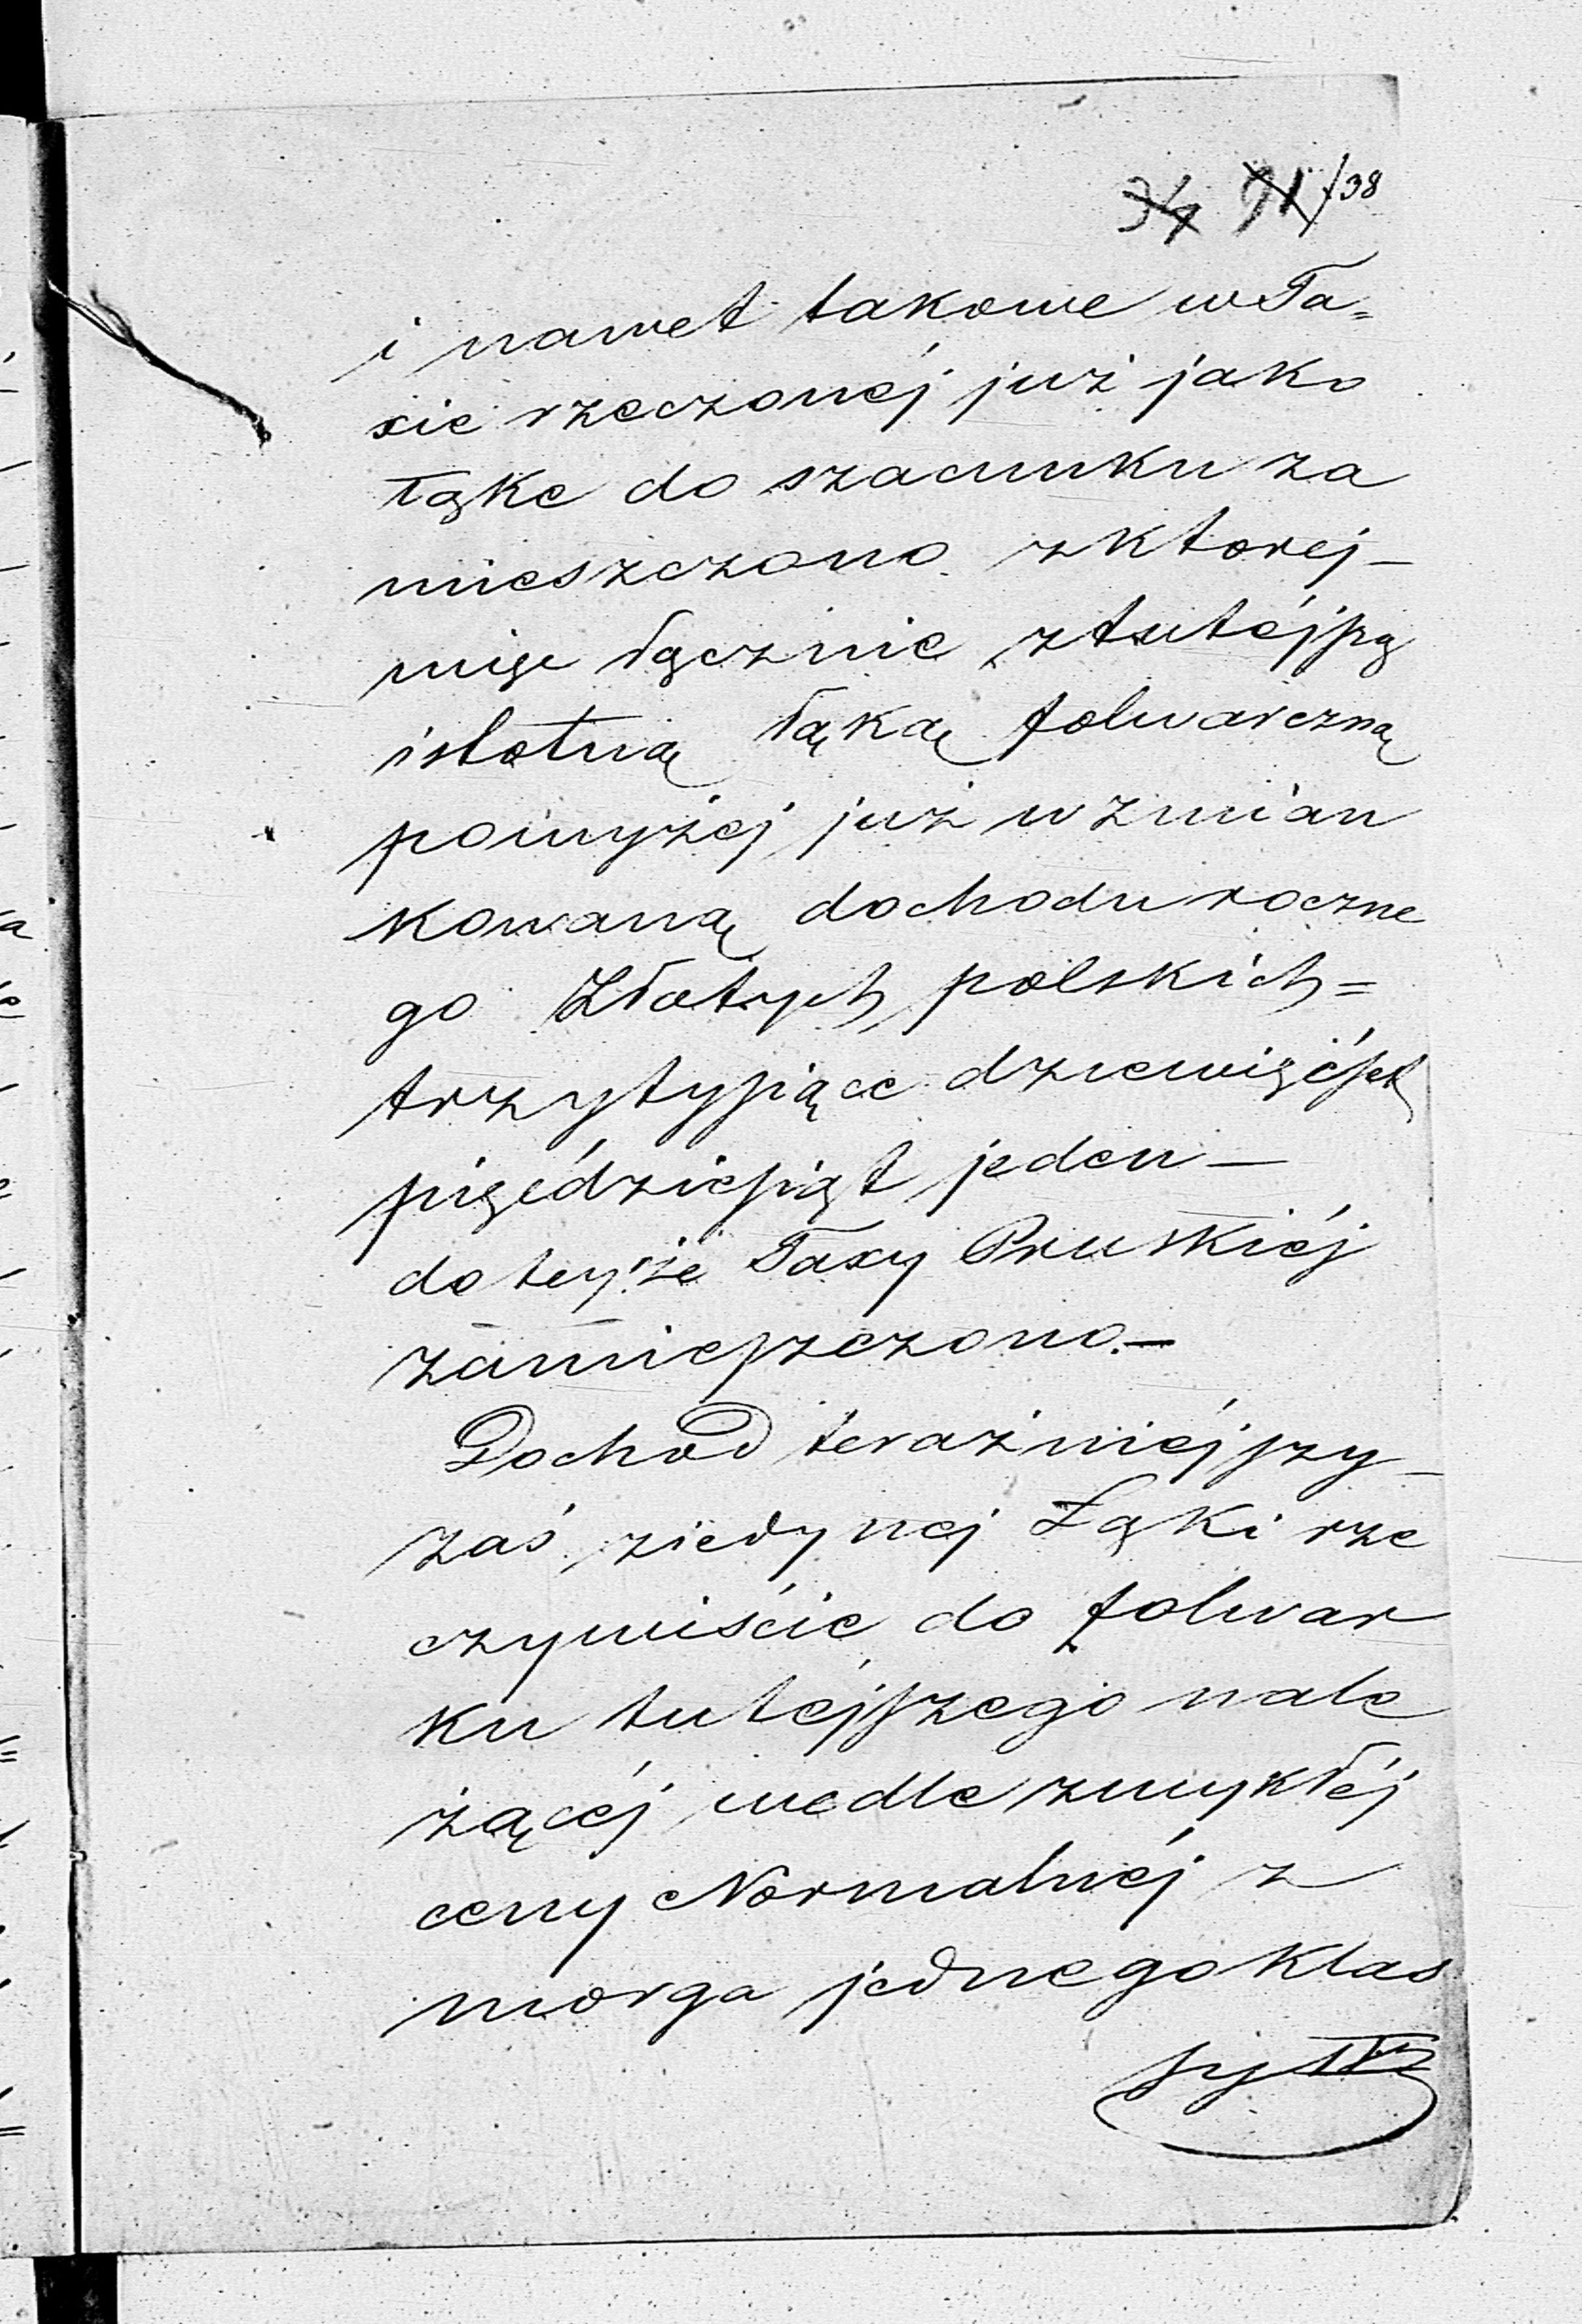 34 91/38
i nawet takowe w Ta=
xie rzeczonéj już jako
łąke do szacunku za
mieszczono z ktorej –
więc łącznie z tutéjszą
istotną łąką folwarczną
powyżej już wzmian
kowaną dochodu roczne
go Złotych polskich =
trzy tysiące dziewięćset
pięćdziesiąt jeden –
do tejże Taxy Pruskiéj
zamieszczono. –
Dochod teraźniéjszy –
zaś z iedynej Łąki rze
czywiście do folwar
ku tutéjszego nale
żącéj wedle zwykłéj
ceny Normalnéj z
morga jednego klas
sy IV